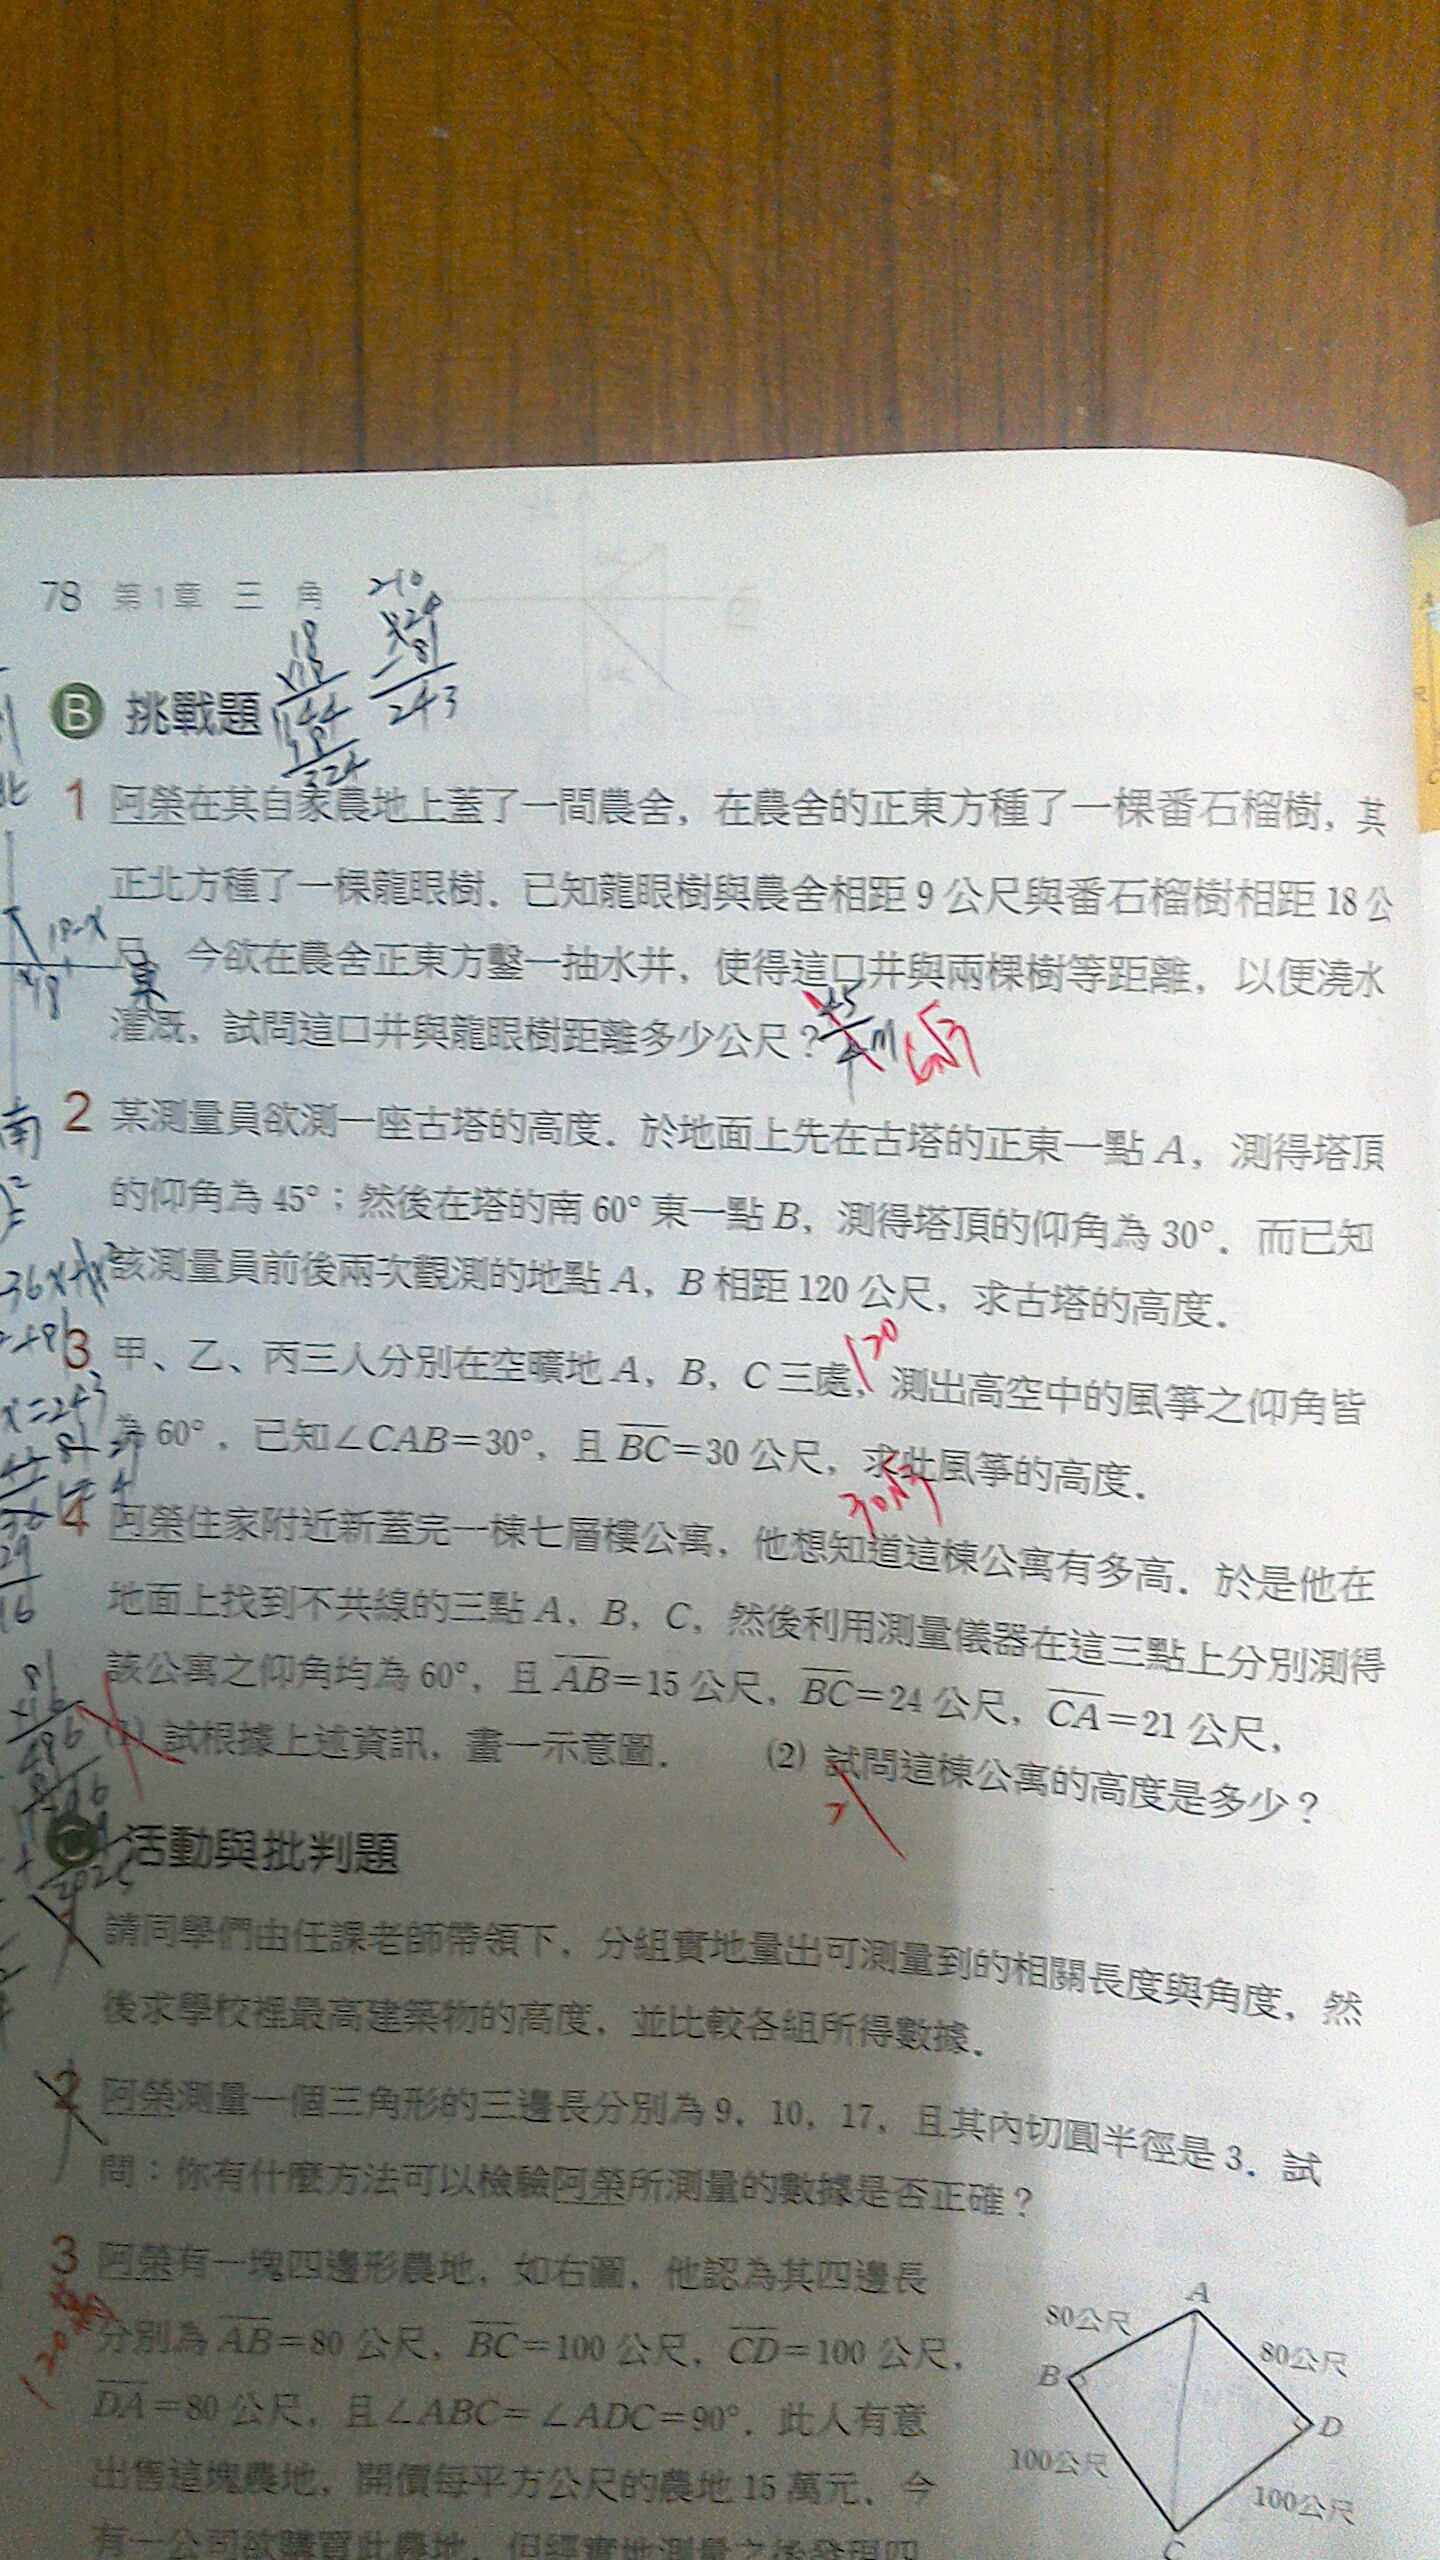 78 第1章 三 角
210
18
324
81
243
144
18
324
B 挑戰題
1 阿榮在其自家農地上蓋了一間農舍，在農舍的正東方種了一棵番石榴樹，其
正北方種了一棵龍眼樹．已知龍眼樹與農舍相距 9 公尺與番石榴樹相距 18 公
18-x
尺．今欲在農舍正東方鑿一抽水井，使得這口井與兩棵樹等距離，以便澆水
東
灌溉，試問這口井與龍眼樹距離多少公尺？
m 6√3
南
2 某測量員欲測一座古塔的高度．於地面上先在古塔的正東一點 A，測得塔頂
的仰角為 45°；然後在塔的南 60° 東一點 B，測得塔頂的仰角為 30°．而已知
該測量員前後兩次觀測的地點 A，B 相距 120 公尺，求古塔的高度．
120
3 甲、乙、丙三人分別在空曠地 A，B，C 三處，測出高空中的風箏之仰角皆
x=243
為 60°．已知∠CAB=30°，且 BC=30 公尺，求此風箏的高度．
30√3
4 阿榮住家附近新蓋完一棟七層樓公寓，他想知道這棟公寓有多高．於是他在
地面上找到不共線的三點 A，B，C，然後利用測量儀器在這三點上分別測得
該公寓之仰角均為 60°，且 AB=15 公尺，BC=24 公尺，CA=21 公尺，
(1) 試根據上述資訊，畫一示意圖． (2) 試問這棟公寓的高度是多少？
C 活動與批判題
1 請同學們由任課老師帶領下，分組實地量出可測量到的相關長度與角度，然
後求學校裡最高建築物的高度，並比較各組所得數據．
2 阿榮測量一個三角形的三邊長分別為 9，10，17，且其內切圓半徑是 3．試
問：你有什麼方法可以檢驗阿榮所測量的數據是否正確？
3 阿榮有一塊四邊形農地，如右圖，他認為其四邊長
分別為 AB=80 公尺，BC=100 公尺，CD=100 公尺，
DA=80 公尺，且∠ABC=∠ADC=90°．此人有意
出售這塊農地，開價每平方公尺的農地 15 萬元．今
有一公司欲購買此農地，但經實地測量之後發現四
A
80公尺
80公尺
B
D
100公尺
100公尺
C